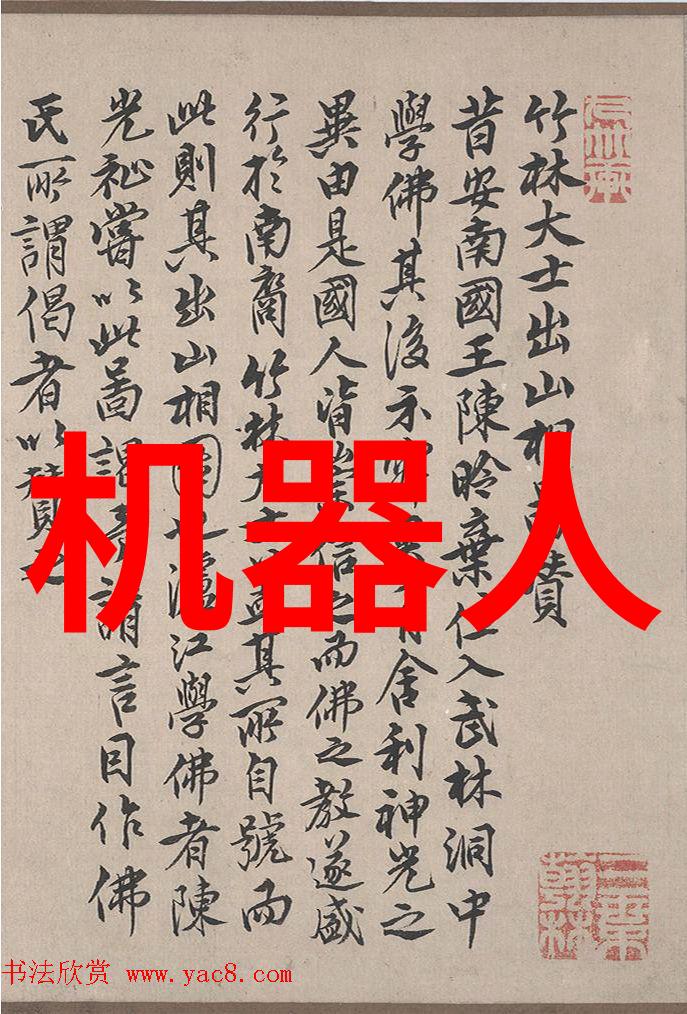 竹林大士出山相啚賛
昔安南國王陳昤棄位入武林洞中
學佛其後示有舍利神光之
異由是國人皆崇信之而佛之教遂盛
行於南裔竹林大士蓋其所自號而
此則其出山相圖也濾江學佛者陳
光祉嘗以此啚謁請言因作佛
氏所謂偈者以賛之
机器人
书法欣赏 www.yac8.com